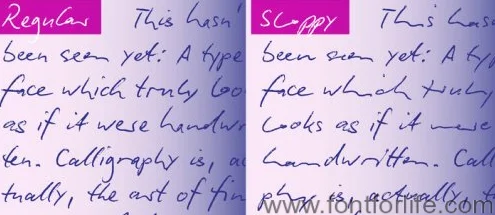 Regular
This hasn'
been seen yet: A type
face which truly loo
as if it were handwr
ten. Calligraphy is, ac
tually, the art of fin
Sloppy
This hasn
been seen yet: A
face which truly
looks as if it were
handwritten. Call
phy is, actually, t
www.fontforlife.com